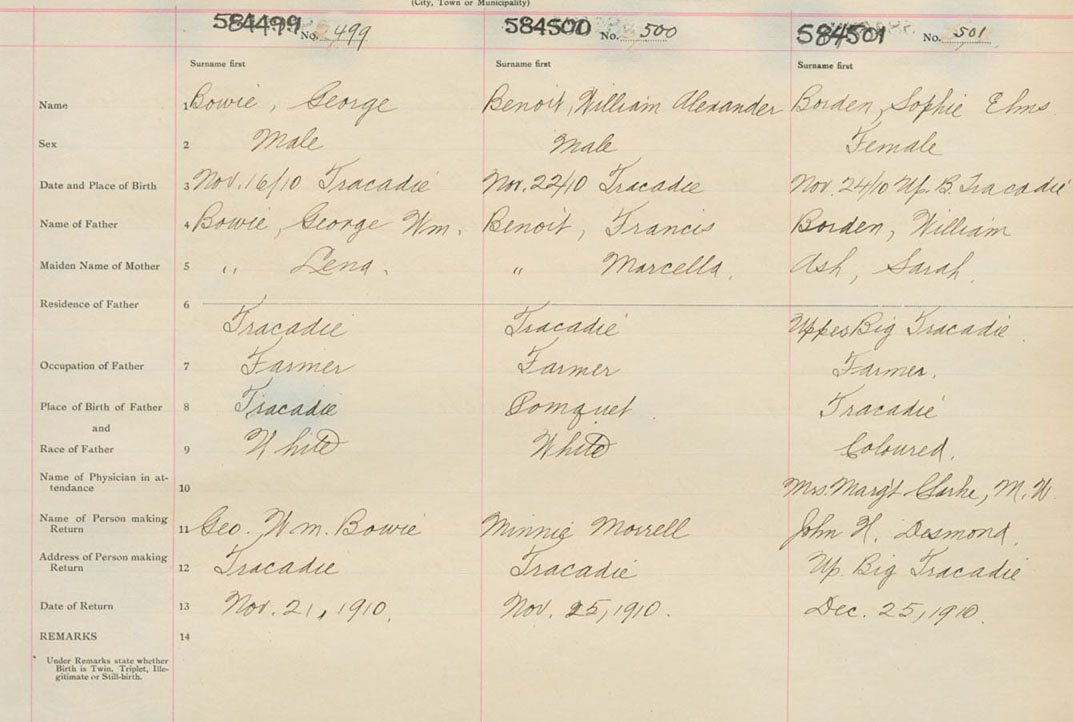 (City, Town or Municipality)
584499 No. 499 584500 No. 500 584501 No. 501
Surname first Surname first Surname first
Name 1 Bowie, George Benoit, William Alexander Borden, Sophie Elms
Sex 2 Male Male Female
Date and Place of Birth 3 Nov. 16/10 Tracadie Nov. 22/10 Tracadie Nov. 24/10 Up. B. Tracadie
Name of Father 4 Bowie, George Wm. Benoit, Francis Borden, William
Maiden Name of Mother 5 " Lena. " Marcella. Ash, Sarah.
Residence of Father 6
Tracadie Tracadie Upper Big Tracadie.
Occupation of Father 7 Farmer Farmer Farmer.
Place of Birth of Father 8 Tracadie Pomquet Tracadie
and
Race of Father 9 White White Coloured.
Name of Physician in at-
tendance 10 Mrs. Margt Clarke, M. W.
Name of Person making
Return 11 Geo. Wm. Bowie Minnie Morrell John H. Desmond.
Address of Person making
Return 12 Tracadie Tracadie Up. Big Tracadie
Date of Return 13 Nov. 21, 1910. Nov. 25, 1910. Dec. 25, 1910.
REMARKS 14
Under Remarks state whether
Birth is Twin, Triplet, Ille-
gitimate or Still-birth.